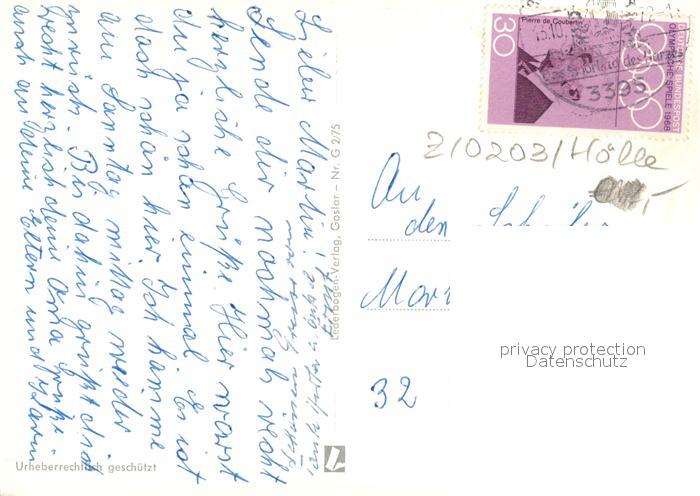 Lieber Martin!
Sende dir nochmals recht
herzliche Grüße. Hier warst
du ja schon einmal. Es ist
doch schön hier. Ich komme
am Sonntag mittag wieder
zurück. Bis dahin grüßt dich
recht herzlich deine Oma. Grüße
auch an deine Eltern und
Lederbogen-Verlag, Goslar – Nr. G 2/75
Urheberrechtlich geschützt
Pierre de Coubertin
30
DEUTSCHE BUNDESPOST
OLYMPISCHE SPIELE 1968
3395
2/0203/Hölle
An
den Schüler
32
privacy protection
Datenschutz